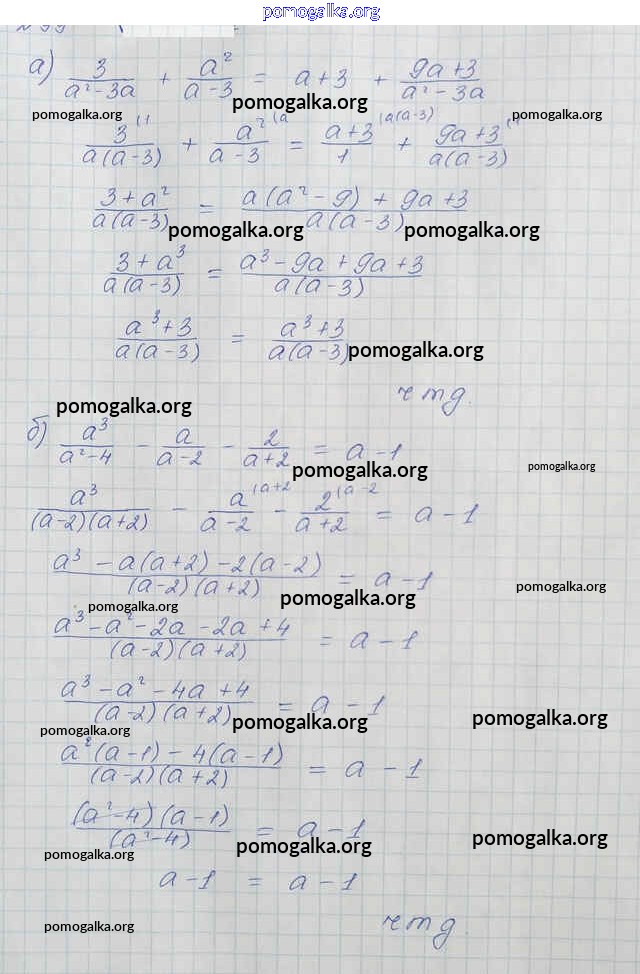 pomogalka.org
а) 3/(a²-3a) + a²/(a-3) = a+3 + (9a+3)/(a²-3a)
pomogalka.org pomogalka.org pomogalka.org
3⁽¹/(a(a-3)) + a²⁽ᵃ/(a-3) = (a+3)/1 ⁽a(a-3) + (9a+3)⁽¹/(a(a-3))
(3+a²)/(a(a-3)) = (a(a²-9)+9a+3)/(a(a-3))
pomogalka.org pomogalka.org
(3+a³)/(a(a-3)) = (a³-9a+9a+3)/(a(a-3))
(a³+3)/(a(a-3)) = (a³+3)/(a(a-3))
pomogalka.org
чтд.
pomogalka.org
б) a³/(a²-4) - a/(a-2) - 2/(a+2) = a-1
pomogalka.org pomogalka.org
a³/((a-2)(a+2)) - a⁽a+2/(a-2) - 2⁽a-2/(a+2) = a-1
(a³-a(a+2)-2(a-2))/((a-2)(a+2)) = a-1
pomogalka.org pomogalka.org
pomogalka.org
(a³-a²-2a-2a+4)/((a-2)(a+2)) = a-1
(a³-a²-4a+4)/((a-2)(a+2)) = a-1
pomogalka.org pomogalka.org pomogalka.org
(a²(a-1)-4(a-1))/((a-2)(a+2)) = a-1
((a²-4)(a-1))/((a²-4)) = a-1
pomogalka.org pomogalka.org pomogalka.org
a-1 = a-1
pomogalka.org
чтд.